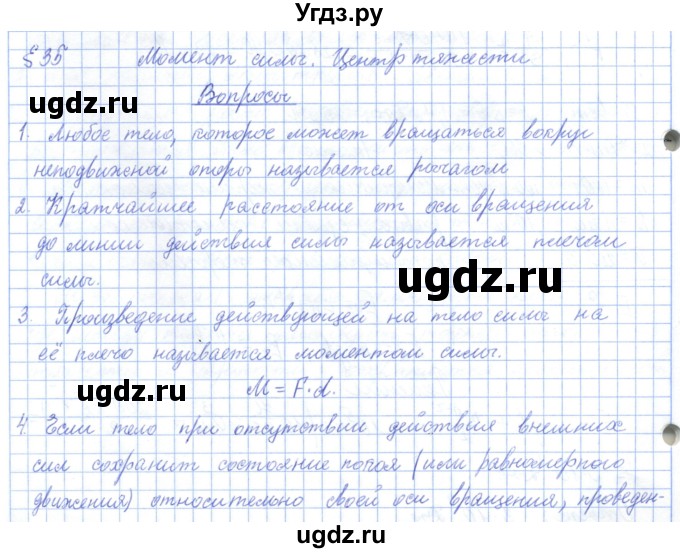 Угдз.ру
§35 Момент силы. Центр тяжести
ugdz.ru
Вопросы
1. Любое тело, которое может вращаться вокруг
неподвижной опоры называется рычагом
2. Кратчайшее расстояние от оси вращения
до линии действия силы называется плечом
силы.
ugdz.ru
3. Произведение действующей на тело силы на
её плечо называется моментом силы.
M = F·d.
ugdz.ru
ugdz.ru
4. Если тело при отсутствии действия внешних
сил сохранит состояние покоя (или равномерного
движения) относительно своей оси вращения, проведен-
ugdz.ru